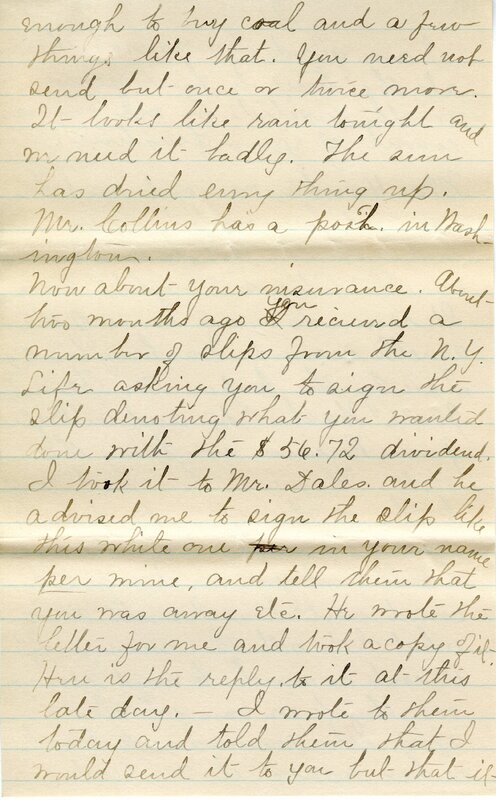 enough to buy coal and a few
things like that. You need not
send but once or twice more.
It looks like rain tonight and
we need it badly. The sun
has dried every thing up.
Mr. Collins has a posit. in Wash-
ington.
Now about your insurance. About
two months ago you recieved a
number of slips from the N.Y.
Life asking you to sign the
slip denoting what you wanted
done with the $56.72 dividend.
I took it to Mr. Dales and he
advised me to sign the slip like
this white one per in your name
per mine, and tell them that
you was away etc. He wrote the
letter for me and took a copy of it.
Here is the reply to it at this
late day. — I wrote to them
today and told them that I
would send it to you but that it